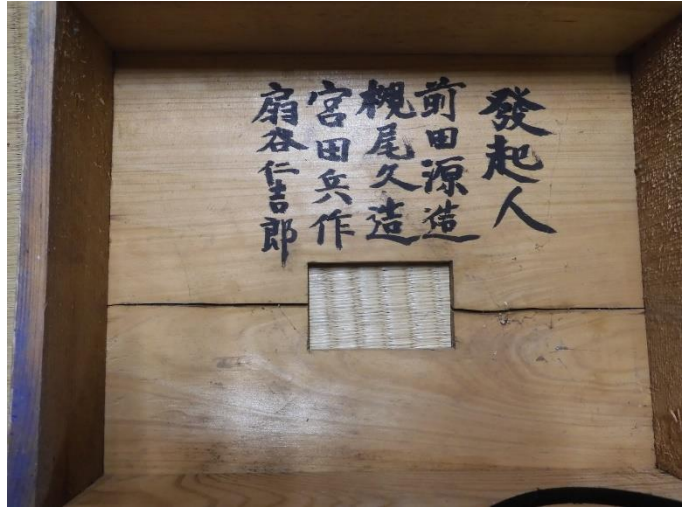 發起人
前田源造
槻尾久造
宮田兵作
扇谷仁吉郎